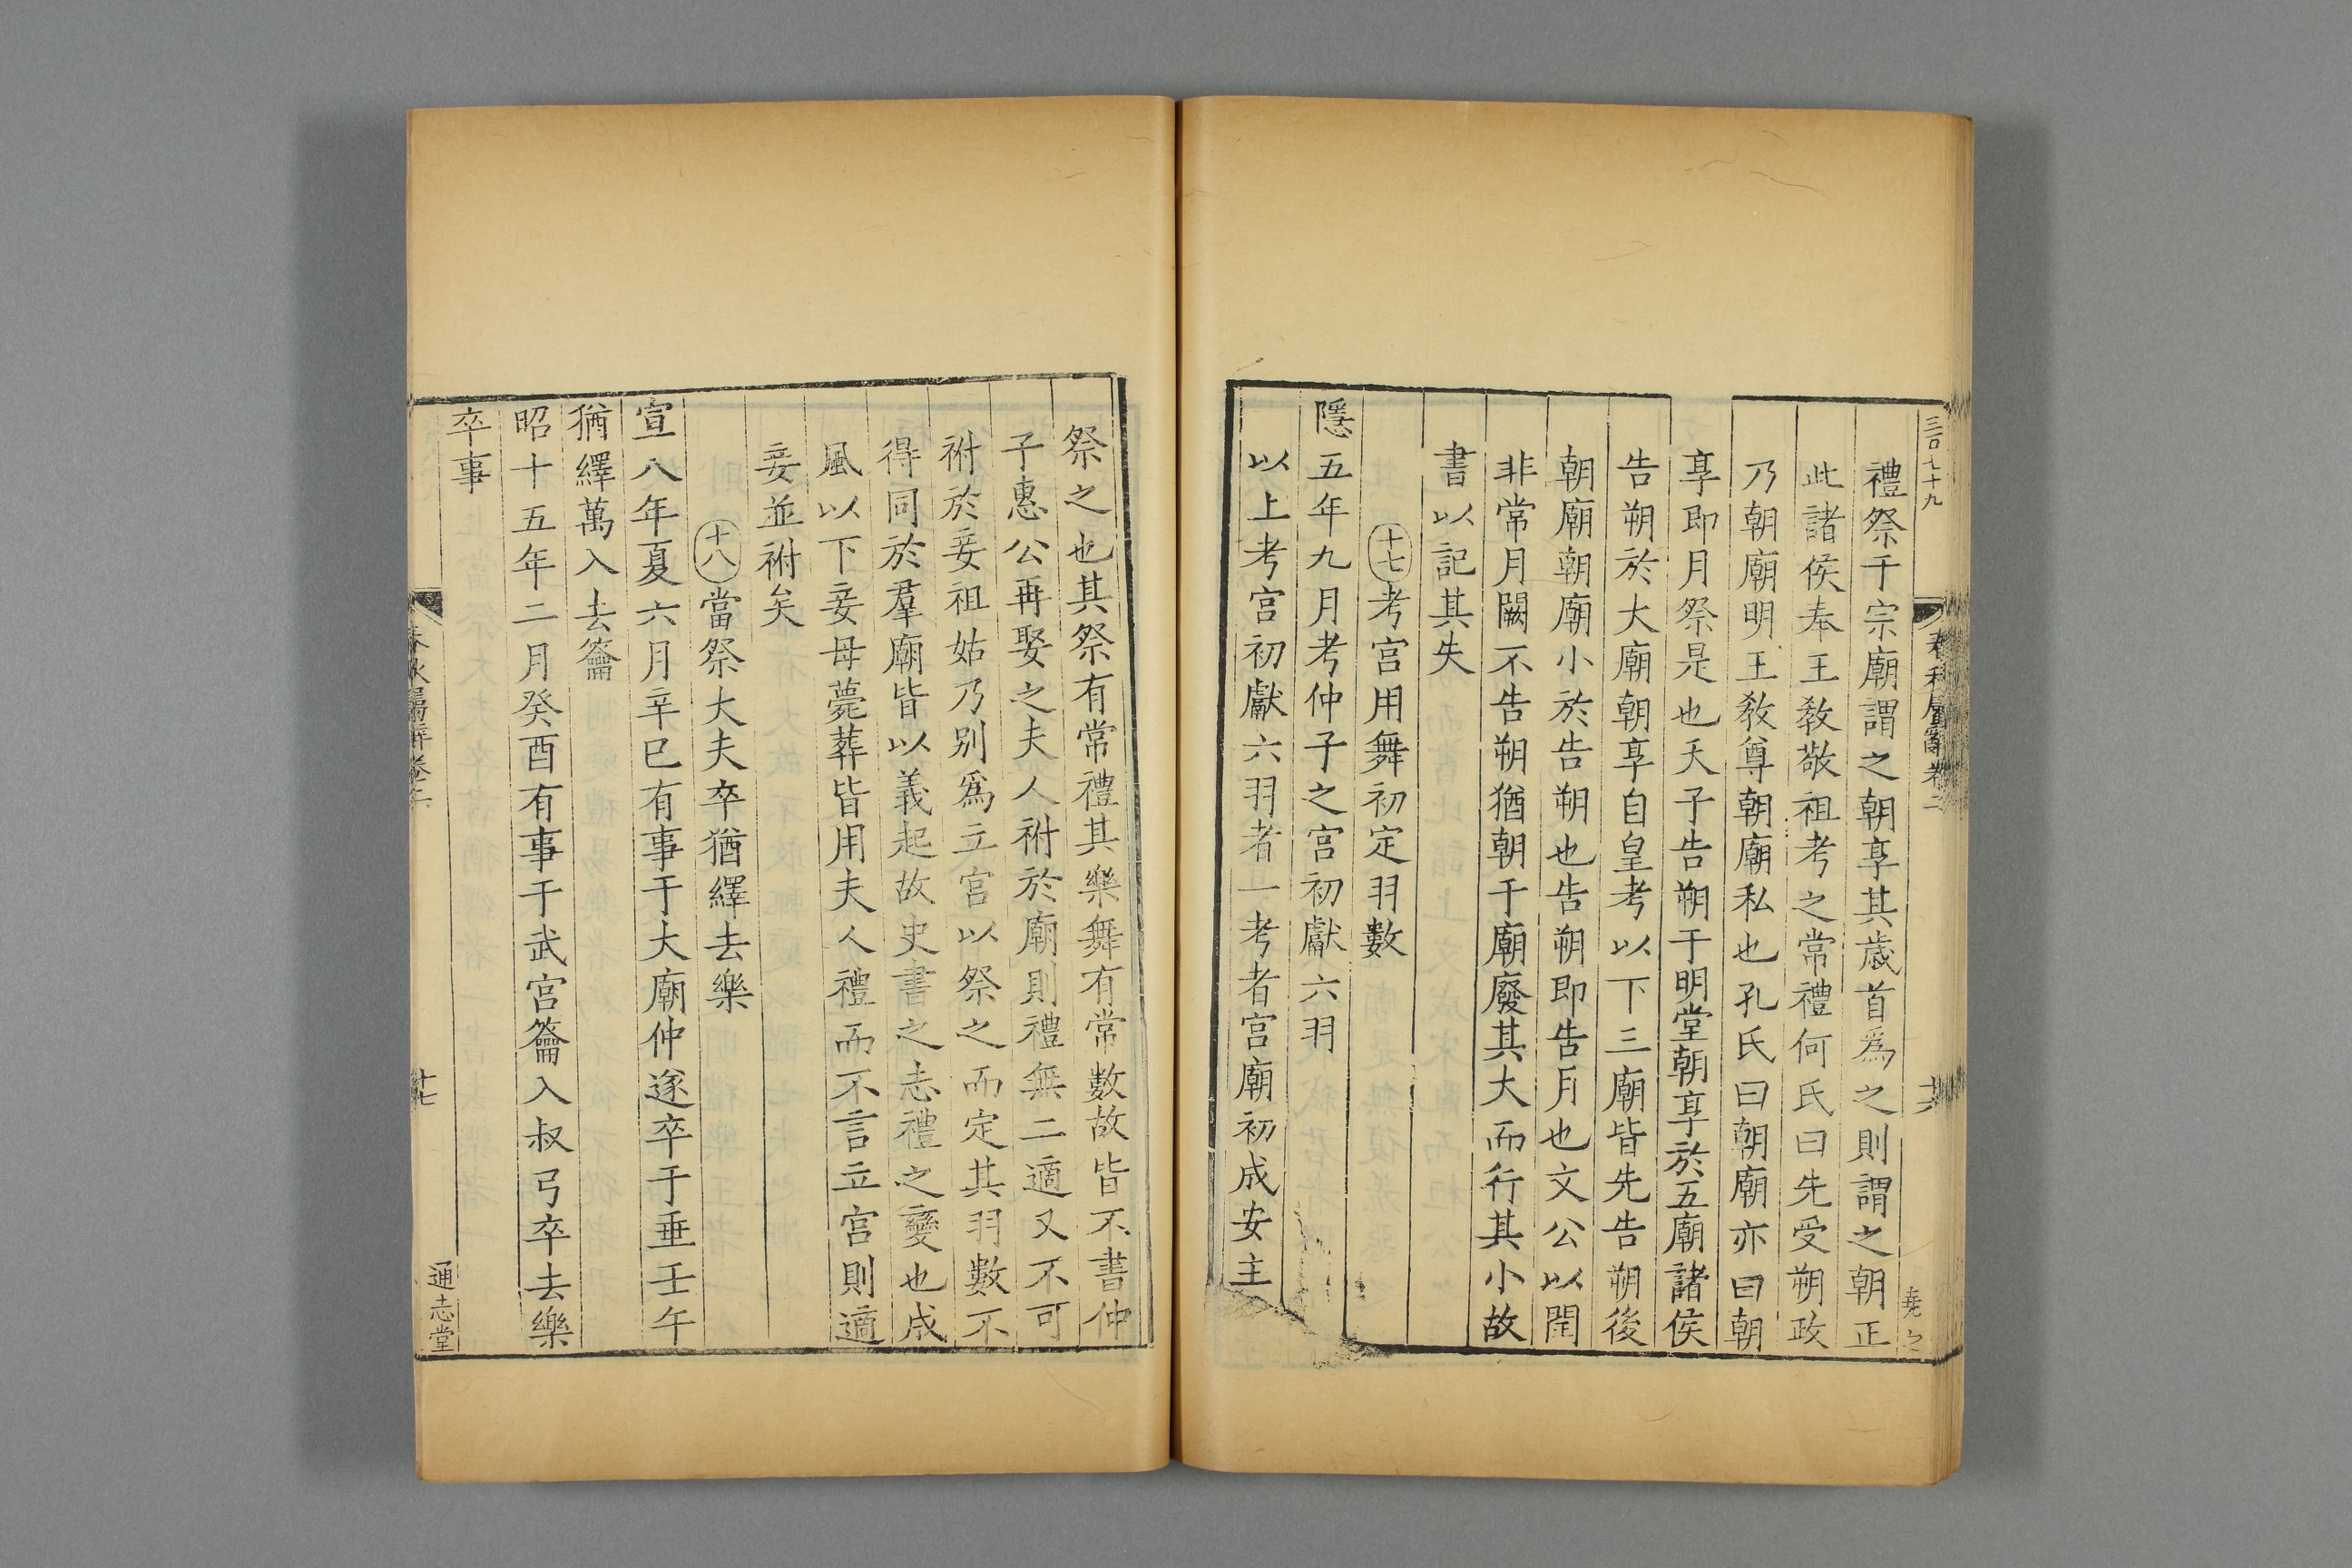 三百七十九
春秋屬辭卷二
十六
堯之
禮祭于宗廟謂之朝享其歲首爲之則謂之朝正
此諸侯奉王敎敬祖考之常禮何氏曰先受朔政
乃朝廟明王敎尊朝廟私也孔氏曰朝廟亦曰朝
享即月祭是也天子告朔于明堂朝享於五廟諸侯
告朔於大廟朝享自皇考以下三廟皆先告朔後
朝廟朝廟小於告朔也告朔即告月也文公以閏
非常月闕不告朔猶朝于廟廢其大而行其小故
書以記其失
十七考宮用舞初定羽數
隱五年九月考仲子之宮初獻六羽
以上考宮初獻六羽者一考者宮廟初成安主
祭之也其祭有常禮其樂舞有常數故皆不書仲
子惠公再娶之夫人祔於廟則禮無二適又不可
祔於妾祖姑乃別爲立宮以祭之而定其羽數不
得同於羣廟皆以義起故史書之志禮之變也成
風以下妾母薨葬皆用夫人禮而不言立宮則適
妾並祔矣
十八當祭大夫卒猶繹去樂
宣八年夏六月辛巳有事于大廟仲遂卒于垂壬午
猶繹萬入去籥
昭十五年二月癸酉有事于武宮籥入叔弓卒去樂
卒事
春秋屬辭卷二
十七
通志堂